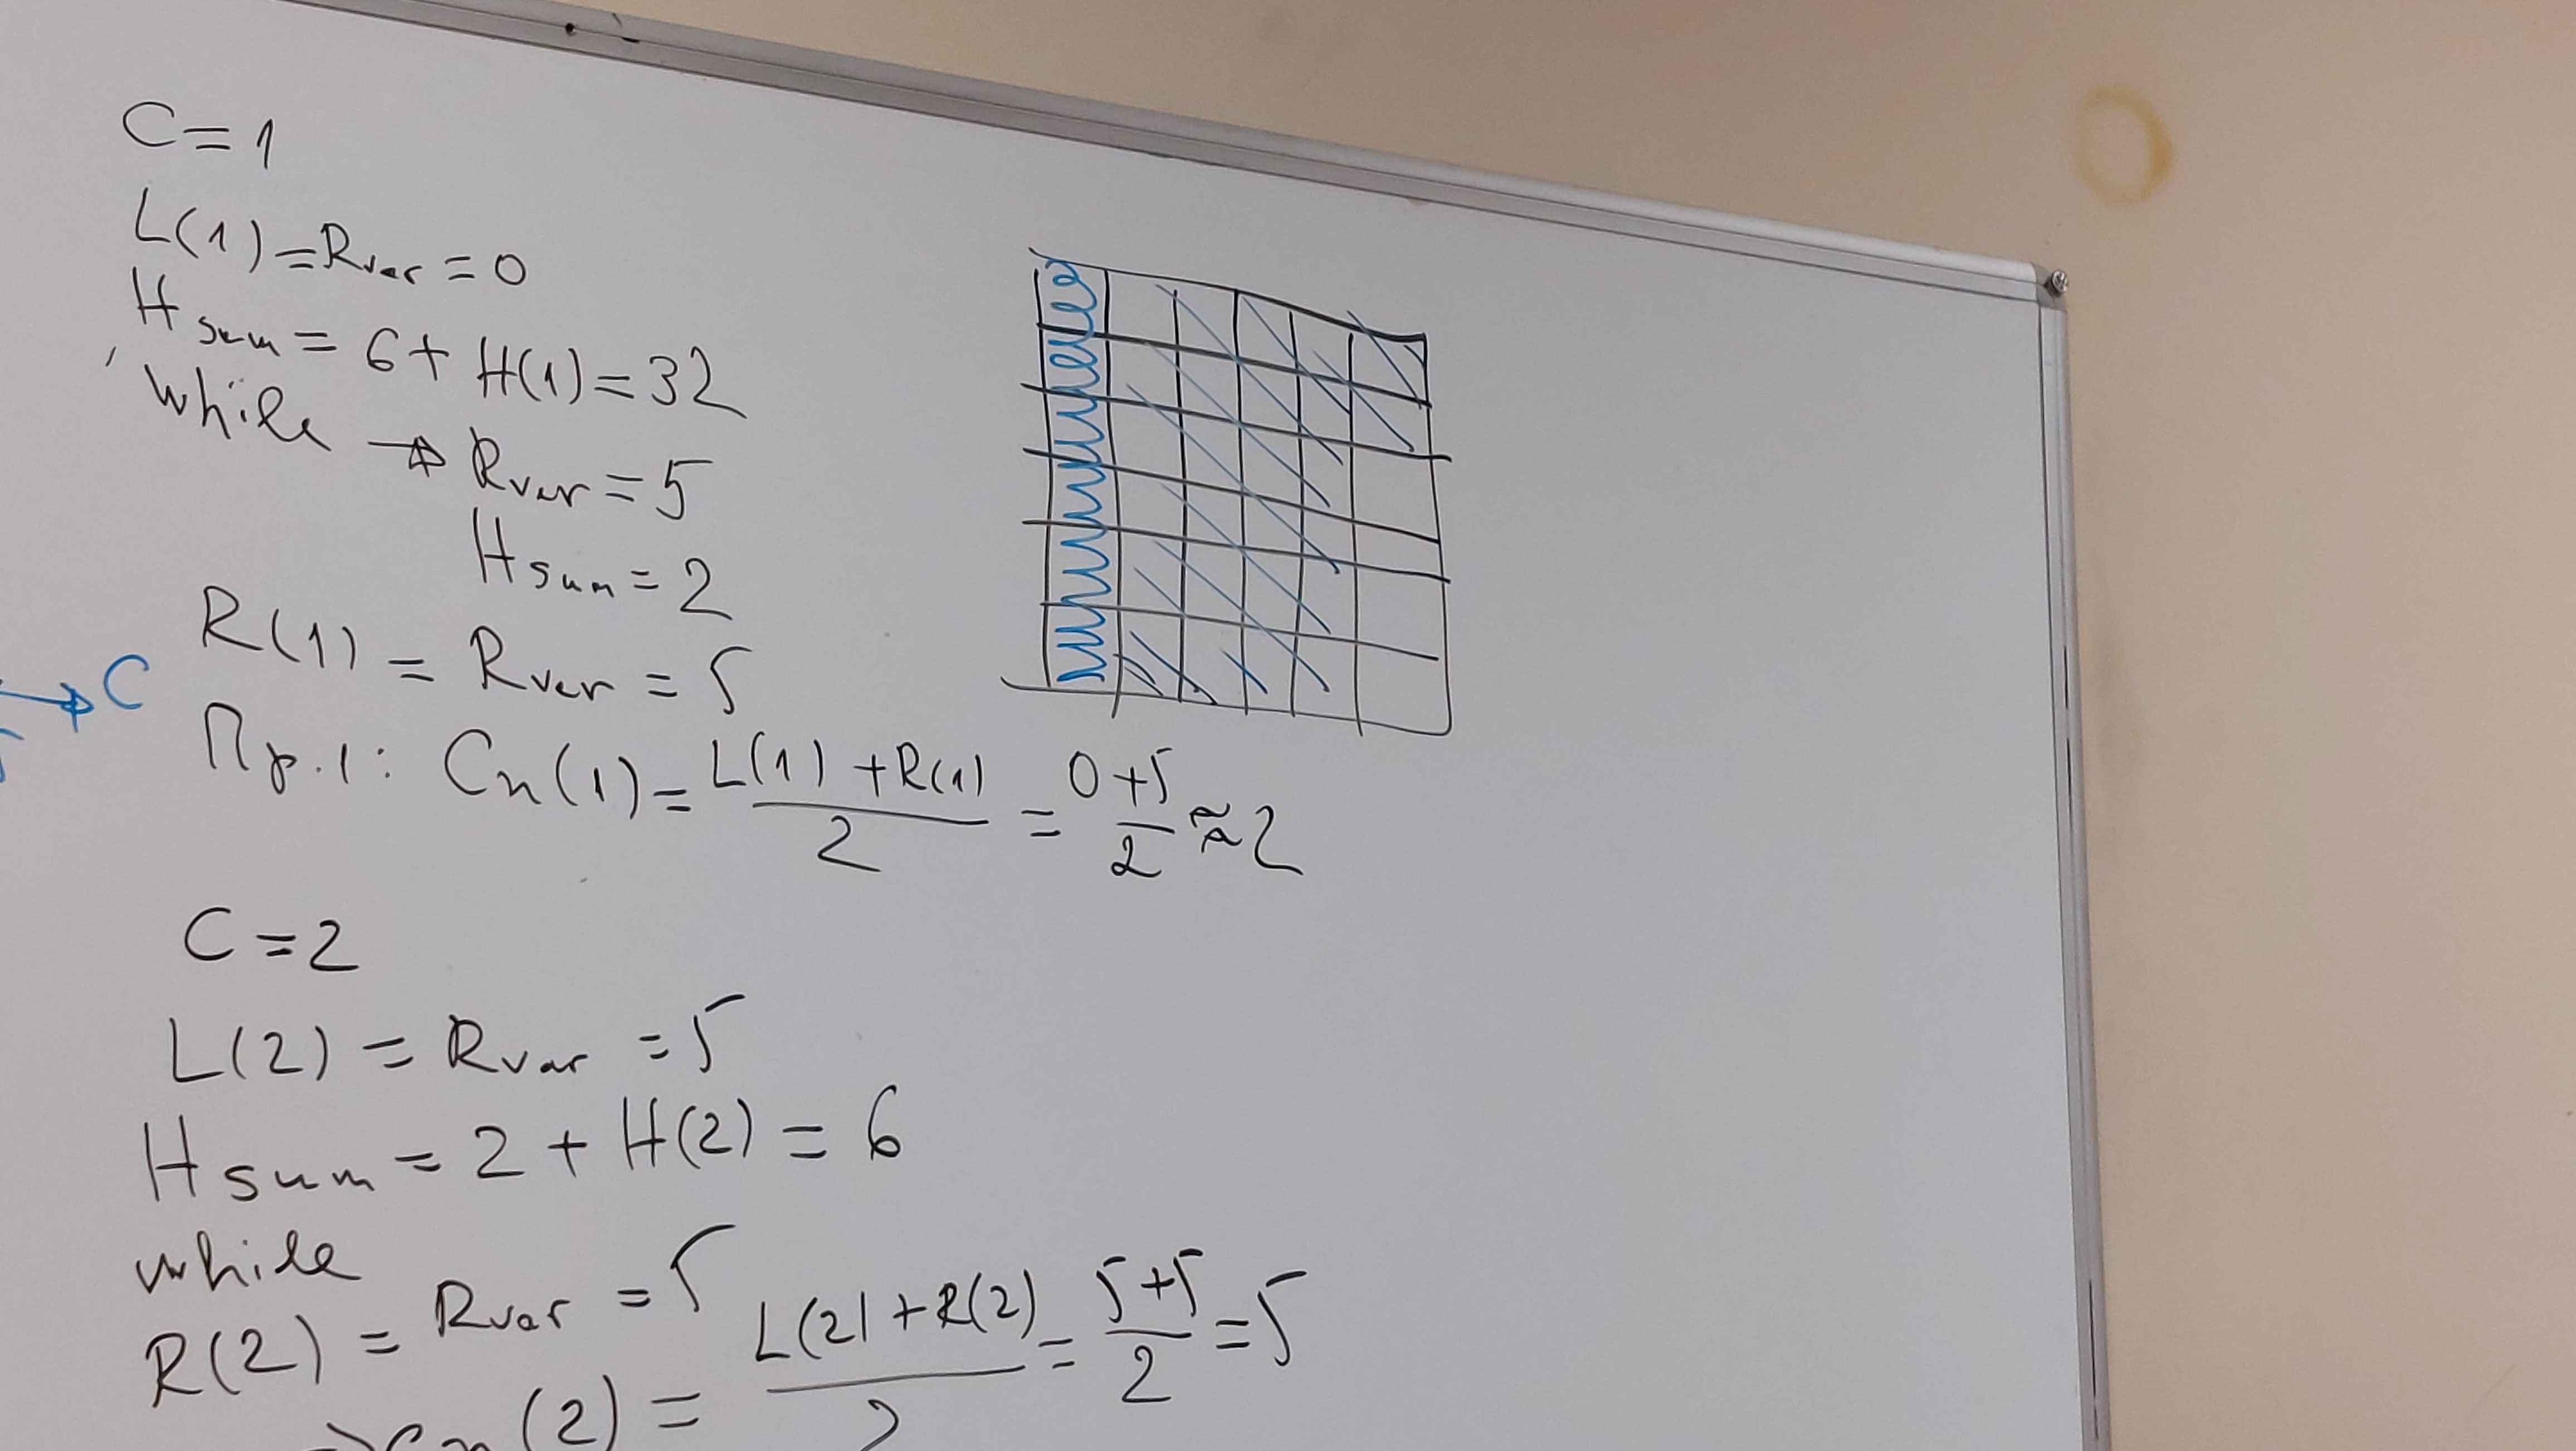 C=1
L(1)=Rvar=0
Hsum=6+H(1)=32
while → Rvar=5
Hsum=2
R(1)=Rvar=5
C
Пр.1: Cn(1)=L(1)+R(1)/2=0+5/2≈2
C=2
L(2)=Rvar=5
Hsum=2+H(2)=6
while
R(2)=Rvar=5
Cn(2)=L(2)+R(2)/2=5+5/2=5